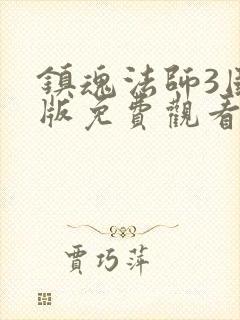 鎮魂法師3國
版免費觀看
賈巧萍